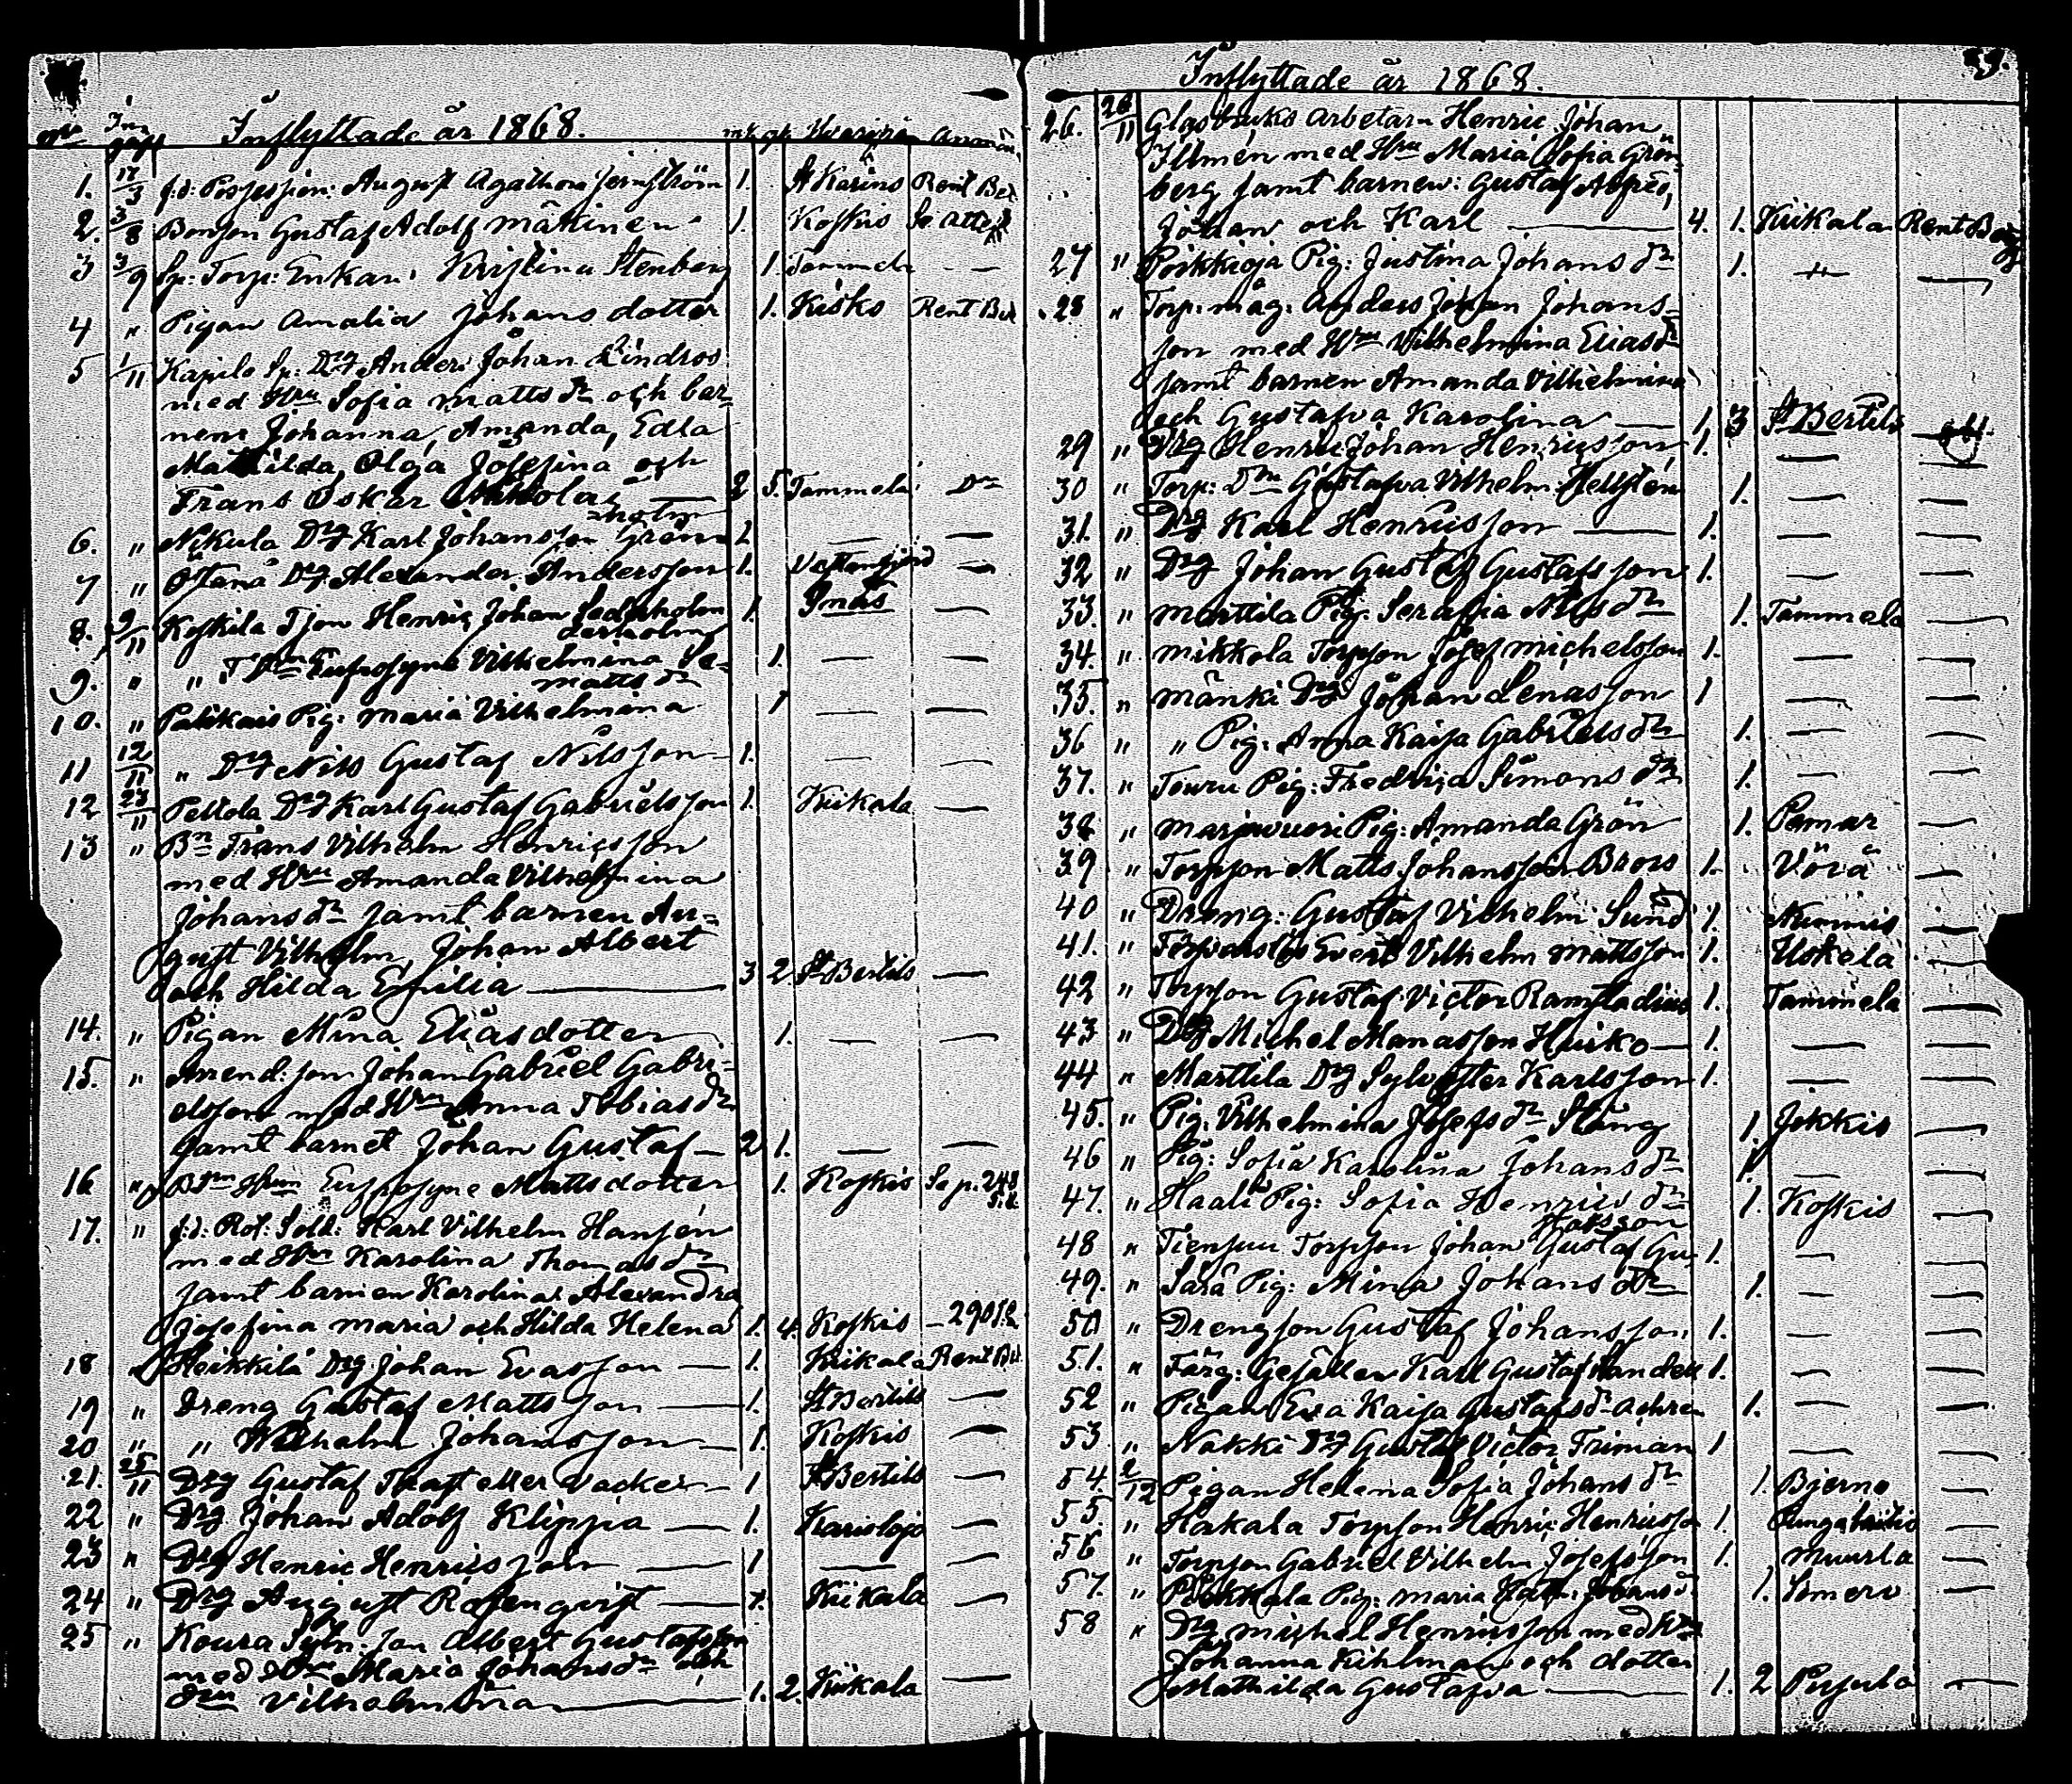 Inflyttade år 1868.
1. 17/3 f.d. Possession: August Agathon Jernström 1. St Karins Rent Bet
2. 3/8 Bonson Gustaf Adolf Mäkinen 1. Koskis Se Attest
3 3/9 Sp: Torp: Enkan Kristina Stenberg 1. Tammela — —
4 " Pigan Amalia Johans dotter 1. Kisko Rent Bet
5 1/11 Kapila Sp: Drg Anders Johan Lindros
med Hru Sofia Matts dr och bar-
nen: Johanna, Amanda, Edla
Mathilda, Olga Josefina och
Frans Oskar — 2 5. Tammela Do
holm
6. " Nikula Drg Karl Johansson Grön- 1 — —
7 " Ottana Drg Alexander Andersson 1. Vestanfjerd —
8. 9/11 Koskila Tson Henric Johan Sederholm 1. —
derholm
9. " " T Dru Eufrosyne Vilhelmina Se- 1. — —
Matts dr
10. " Palikais Pig: Maria Vilhelmina 1 — —
11 12/11 " Drg Nils Gustaf Nilsson 1. — —
12 23/11 Peltola Drg Karl Gustaf Gabrielsson 1. Kiikala —
13 " Bn Frans Vilhelm Henricsson
med Hru Amanda Vilhelmina
Johans dr samt barnen Au-
gust Vilhelm, Johan Albert
och Hilda Emilia — 3 2. St Bertils —
14. " Pigan Mina Eliasdotter 1. — —
15. " Arrend: son Johan Gabriel Gabri-
elsson med Hru Anna Tobias dr
samt barnet Johan Gustaf — 2 1. — —
16 " Eufrosyne Mattsdotter 1. Koskis Se p. 248
17. " f.d. Rot. Sold: Karl Vilhelm Hansén
med Hru Karolina Thomas dr
samt barnen Karolina Alexandra
Josefina Maria och Hilda Helena 1. 4. Koskis — 290
18 " Heikkilä Drg Johan Evasson — 1. Kiikala Rent Bet
19 " Dreng Gustaf Matts son — 1. St Bertils —
20 " " Wilhelm Johansson — 1. Koskis —
21. 25/11 Drg Gustaf Traft eller Vacker — 1 St Bertils —
22 " Drg Johan Adolf Klippia — 1. Karislojo —
23 " Drg Henric Henricsson — 1 — —
24 " Drg August Rosenqvist — 1. Kiikala —
25 " Koura Sytn: son Albert Gustafsson
med Hru Maria Johansdr och
dru Vilhelmina — 1. 2. Kiikala —
Inflyttade år 1868.
26. 26/11 Glasbruks Arbetarn Henric Johan
Illmén med Hru Maria Sofia Grön-
berg samt barnen: Gustaf Alfred,
Johan och Karl — 4. 1. Kiikala Rent Betyg
27 " Poikkioja Pig: Justina Johans dr 1. " —
28 " Torp: måg: Anders Johan Johans-
son med Hru Vilhelmina Elias dr
samt barnen Amanda Vilhelmina
och Gustafva Karolina — 1. 3 St Bertils
29 " Drg Henric Johan Henricsson 1. — —
30 " Torp: Dru Gustafva Vilhelm: Hellsten 1. — —
31. " Drg Karl Henricsson — 1. — —
32 " Drg Johan Gustaf Gustafsson 1. — —
33. " Marttila Pig. Serafia Nils dr 1. Tammela —
34. " Mikkola Torpson Josef Michelsson 1. — —
35. " Mänki Drg Johan Lenasson 1 — —
36 " " Pig: Anna Kaisa Gabriels dr 1. — —
37. " Touru Pig: Fredrica Simons dr 1. — —
38 " Marjavuori Pig: Amanda Grön 1. Pemar —
39 " Torpson Matts Johansson Brors 1. Vörå —
40 " Dreng: Gustaf Vilhelm Sund 1. Nummis —
41. " Evert Vilhelm Mattsson 1. Uskela —
42 " Torpson Gustaf Victor Ramstadius 1. Tammela —
43 " Drg Michel Manasson Huiko — 1. — —
44 " Marttila Drg Sylvester Karlsson 1. — —
45. " Pig. Vilhelmina Josefs dr Stäng 1. Jokkis —
46 " Pig: Sofia Karolina Johans dr 1. — —
47. " Haali Pig: Sofia Henrics dr 1. Koskis —
stafsson
48 " Tiensuu Torpson Johan Gustaf Gu- 1. — —
49. " Sara Pig: Mina Johans dr 1. — —
50 " Drengson Gustaf Johansson 1. — —
51. " Färg: Gesällen Karl Gustaf Sandell 1. — —
52 " Pigan Eva Kaisa Gustafs dr 1. — —
53 " Nakki Drg Gustaf Victor Friman 1 — —
54. 2/12 Pigan Helena Sofia Johans dr 1. Bjerno —
55. " Hakala Torpson Henric Henricsson 1. —
56 " Torpson Gabriel Vilhelm Josefsson 1. Muurla —
57. " Pig: Maria Kath: Johans dr 1. Somero —
58 " Drg Michel Henricsson med Hru
Johanna Kihlman och dotter
Mathilda Gustafva — 1. 2 Pusula —